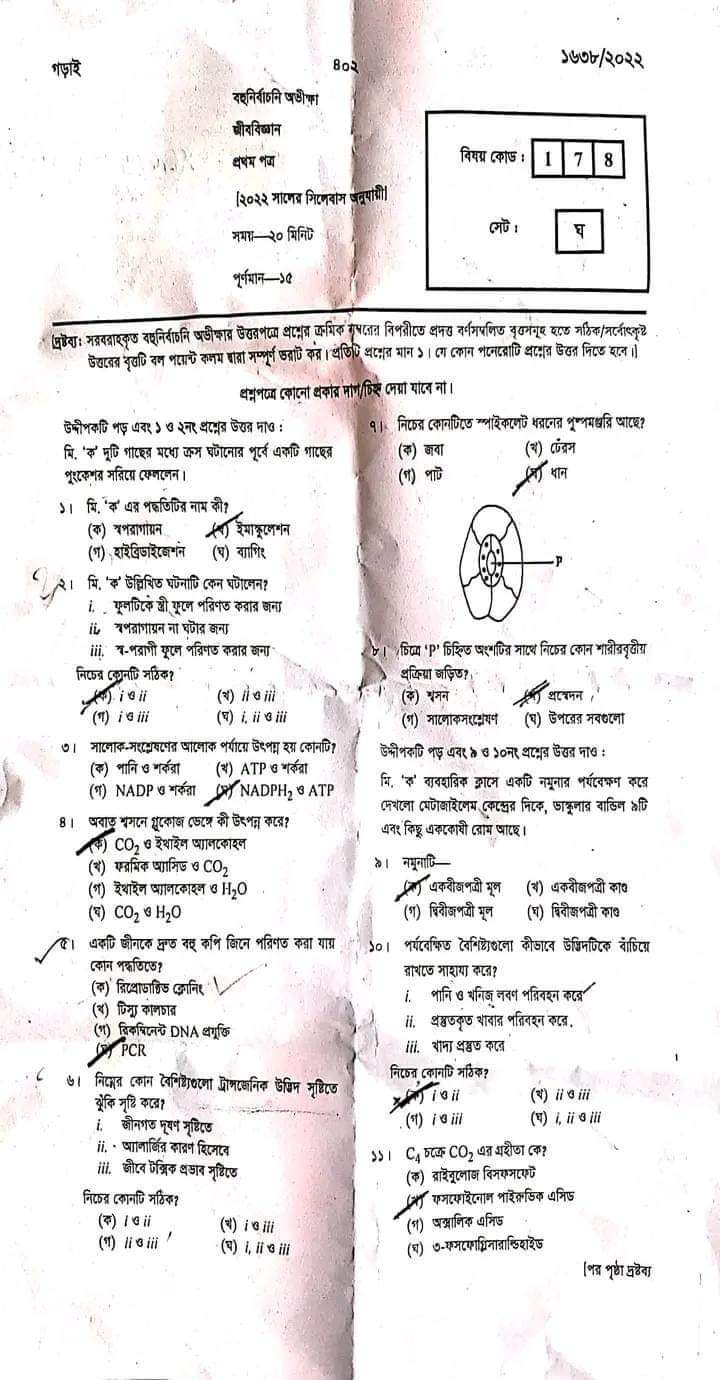 গড়াই
৪০২
১৬৩৮/২০২২
বহুনির্বাচনি অভীক্ষা
জীববিজ্ঞান
প্রথম পত্র
[২০২২ সালের সিলেবাস অনুযায়ী]
সময়—২০ মিনিট
পূর্ণমান—১৫
বিষয় কোড : 1 7 8
সেট : ঘ
[দ্রষ্টব্য: সরবরাহকৃত বহুনির্বাচনি অভীক্ষার উত্তরপত্রে প্রশ্নের ক্রমিক নম্বরের বিপরীতে প্রদত্ত বর্ণসম্বলিত বৃত্তসমূহ হতে সঠিক/সর্বোৎকৃষ্ট
উত্তরের বৃত্তটি বল পয়েন্ট কলম দ্বারা সম্পূর্ণ ভরাট কর। প্রতিটি প্রশ্নের মান ১। যে কোন পনেরোটি প্রশ্নের উত্তর দিতে হবে।]
প্রশ্নপত্রে কোনো প্রকার দাগ/চিহ্ন দেয়া যাবে না।
উদ্দীপকটি পড় এবং ১ ও ২নং প্রশ্নের উত্তর দাও :
মি. ‘ক’ দুটি গাছের মধ্যে ক্রস ঘটানোর পূর্বে একটি গাছের
পুংকেশর সরিয়ে ফেললেন।
১। মি. ‘ক’ এর পদ্ধতিটির নাম কী?
(ক) স্বপরাগায়ন (খ) ইমাস্কুলেশন
(গ) হাইব্রিডাইজেশন (ঘ) ব্যাগিং
২। মি. ‘ক’ উল্লিখিত ঘটনাটি কেন ঘটালেন?
i. ফুলটিকে স্ত্রী ফুলে পরিণত করার জন্য
ii. স্বপরাগায়ন না ঘটার জন্য
iii. স্ব-পরাগী ফুলে পরিণত করার জন্য
নিচের কোনটি সঠিক?
(ক) i ও ii (খ) ii ও iii
(গ) i ও iii (ঘ) i, ii ও iii
৩। সালোক-সংশ্লেষণের আলোক পর্যায়ে উৎপন্ন হয় কোনটি?
(ক) পানি ও শর্করা (খ) ATP ও শর্করা
(গ) NADP ও শর্করা (ঘ) NADPH₂ ও ATP
৪। অবাত শ্বসনে গ্লুকোজ ভেঙ্গে কী উৎপন্ন করে?
(ক) CO₂ ও ইথাইল অ্যালকোহল
(খ) ফরমিক অ্যাসিড ও CO₂
(গ) ইথাইল অ্যালকোহল ও H₂O
(ঘ) CO₂ ও H₂O
৫। একটি জীনকে দ্রুত বহু কপি জিনে পরিণত করা যায়
কোন পদ্ধতিতে?
(ক) রিপ্রোডাক্টিভ ক্লোনিং
(খ) টিস্যু কালচার
(গ) রিকম্বিনেন্ট DNA প্রযুক্তি
(ঘ) PCR
৬। নিম্নের কোন বৈশিষ্ট্যগুলো ট্রান্সজেনিক উদ্ভিদ সৃষ্টিতে
ঝুঁকি সৃষ্টি করে?
i. জীনগত দূষণ সৃষ্টিতে
ii. অ্যালার্জির কারণ হিসেবে
iii. জীবে টক্সিক প্রভাব সৃষ্টিতে
নিচের কোনটি সঠিক?
(ক) i ও ii (খ) i ও iii
(গ) ii ও iii (ঘ) i, ii ও iii
৭। নিচের কোনটিতে স্পাইকলেট ধরনের পুষ্পমঞ্জরি আছে?
(ক) জবা (খ) ঢেঁরস
(গ) পাট (ঘ) ধান
P
৮। চিত্রে ‘P’ চিহ্নিত অংশটির সাথে নিচের কোন শারীরবৃত্তীয়
প্রক্রিয়া জড়িত?
(ক) শ্বসন (খ) প্রস্বেদন
(গ) সালোকসংশ্লেষণ (ঘ) উপরের সবগুলো
উদ্দীপকটি পড় এবং ৯ ও ১০নং প্রশ্নের উত্তর দাও :
মি. ‘ক’ ব্যবহারিক ক্লাসে একটি নমুনার পর্যবেক্ষণ করে
দেখলো মেটাজাইলেম কেন্দ্রের দিকে, ভাস্কুলার বান্ডিল ৯টি
এবং কিছু এককোষী রোম আছে।
৯। নমুনাটি—
(ক) একবীজপত্রী মূল (খ) একবীজপত্রী কাণ্ড
(গ) দ্বিবীজপত্রী মূল (ঘ) দ্বিবীজপত্রী কাণ্ড
১০। পর্যবেক্ষিত বৈশিষ্ট্যগুলো কীভাবে উদ্ভিদটিকে বাঁচিয়ে
রাখতে সাহায্য করে?
i. পানি ও খনিজ লবণ পরিবহন করে
ii. প্রস্তুতকৃত খাবার পরিবহন করে
iii. খাদ্য প্রস্তুত করে
নিচের কোনটি সঠিক?
(ক) i ও ii (খ) ii ও iii
(গ) i ও iii (ঘ) i, ii ও iii
১১। C₄ চক্রে CO₂ এর গ্রহীতা কে?
(ক) রাইবুলোজ বিসফসফেট
(খ) ফসফোইনোল পাইরুভিক এসিড
(গ) অক্সালিক এসিড
(ঘ) ৩-ফসফোগ্লিসারাল্ডিহাইড
[পর পৃষ্ঠা দ্রষ্টব্য